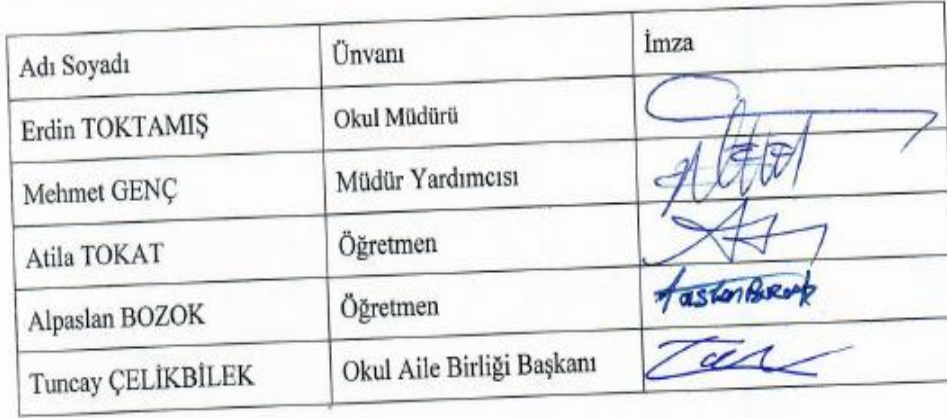 Adı Soyadı Ünvanı İmza
Erdin TOKTAMIŞ Okul Müdürü
Mehmet GENÇ Müdür Yardımcısı
Atila TOKAT Öğretmen
Alpaslan BOZOK Öğretmen
Tuncay ÇELİKBİLEK Okul Aile Birliği Başkanı